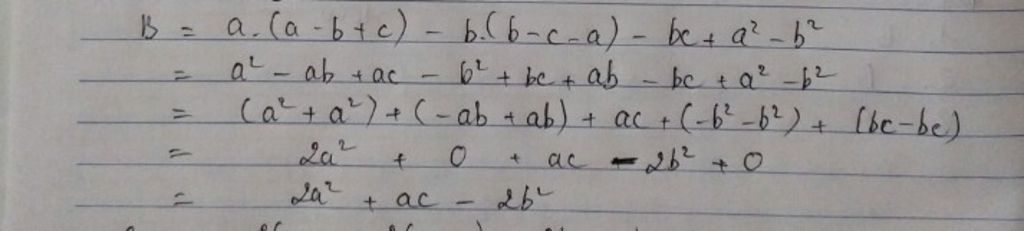 B = a.(a - b + c) - b.(b - c - a) - bc + a² - b²
= a² - ab + ac - b² + bc + ab - bc + a² - b²
= (a² + a²) + (-ab + ab) + ac + (-b² - b²) + (bc - bc)
= 2a² + 0 + ac - 2b² + 0
= 2a² + ac - 2b²